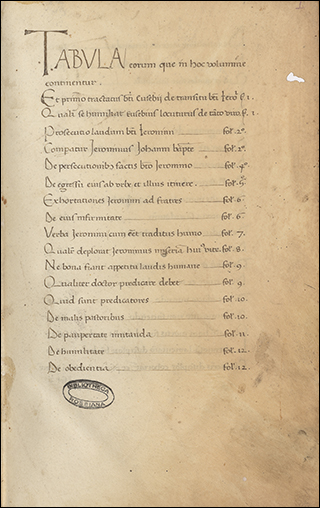 TABVLA eorum que in hoc volumine
continentur.
Et primo tractatus bti Eusebij de transitu bti Jero' f. 1.
Qualr se humiliat eusebius locuturus de tāto viro f. 1.
Prosecutio laudum bti Jeronimi fol. 2º
Comparatur Jeronimus Johanni bapte fol. 2º
De persecutionibus factis bto Jeronimo fol. 4º
De egressu eius ab urbe et illius itinere fol. 5º
Exhortationes Jeronimi ad fratres fol. 6
De eius infirmitate fol. 6
Verba Jeronimi cum esset traditus humo fol. 7.
Qualr deplorat Jeronimus miseriā hui' vite fol. 8.
Ne bona fiant appetitu laudis humane fol. 9
Qualiter doctor predicare debet fol. 9.
Quid sint predicatores fol. 10.
De malis pastoribus fol. 10.
De paupertate imitanda fol. 11.
De humilitate fol. 12.
De obedientia fol. 12.
BIBLIOTHECA
ROSSIANA